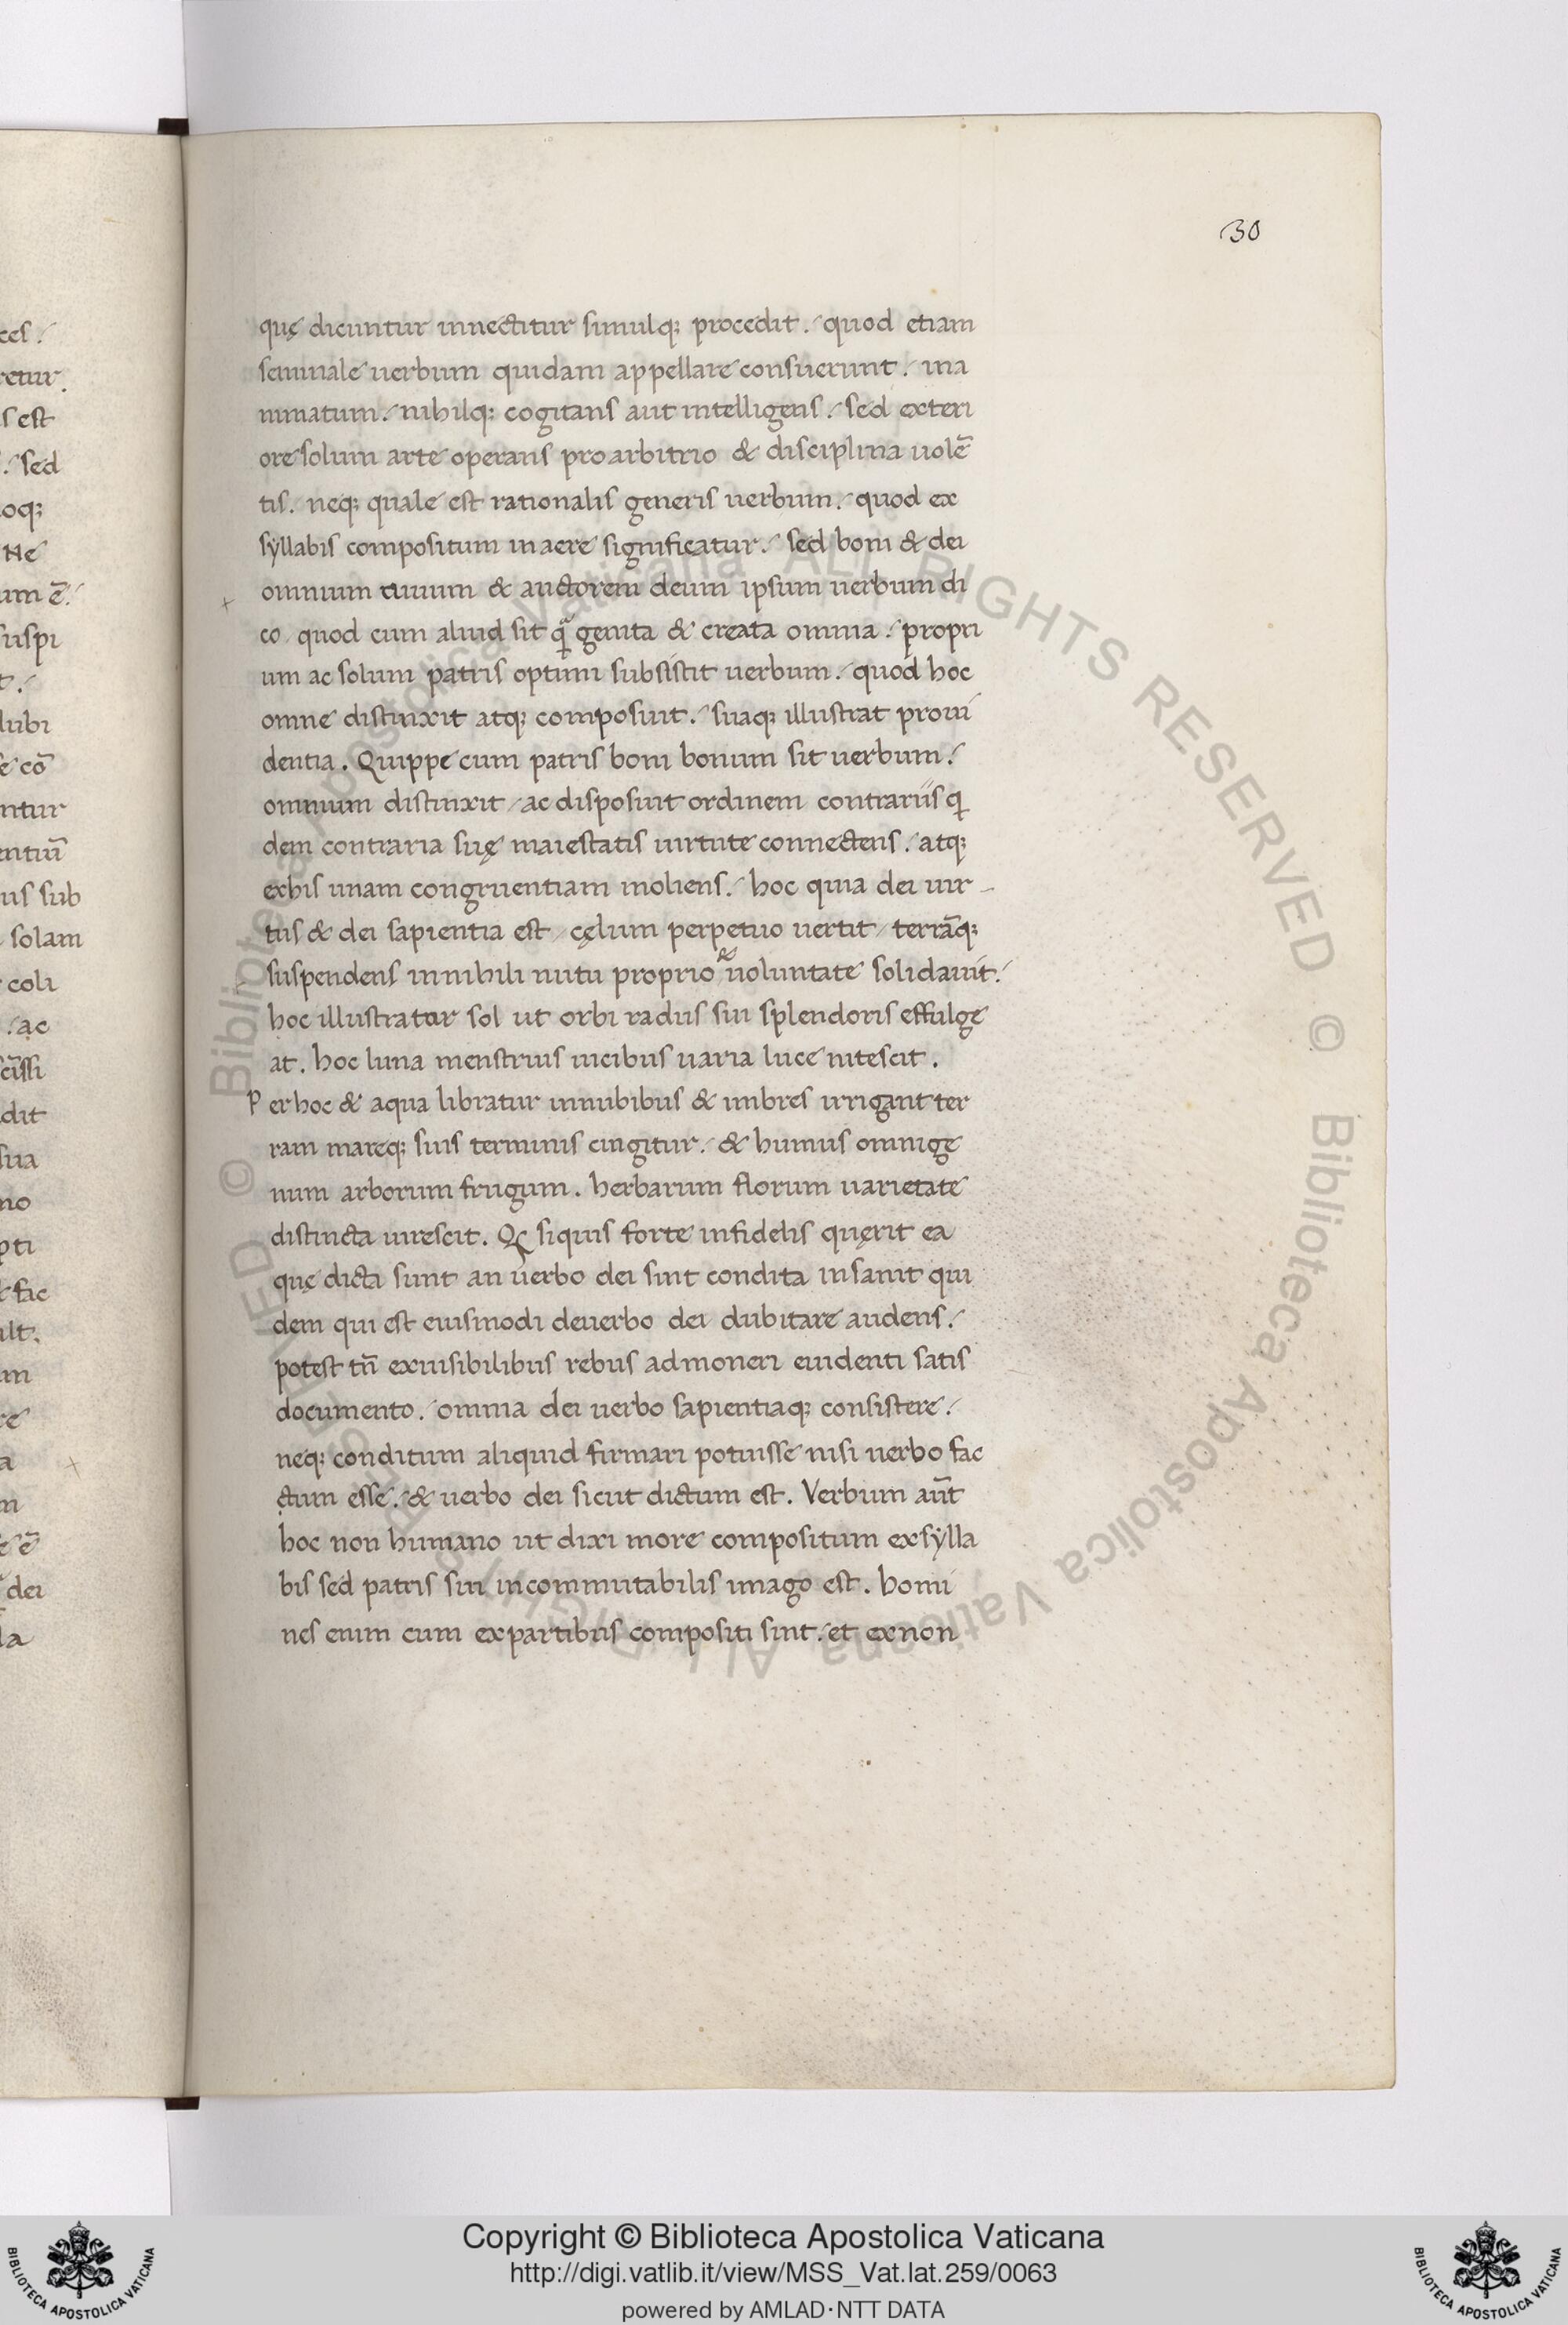 30
quę dicuntur innectitur simulq; procedit. quod etiam
seminale uerbum quidam appellare consuerunt. ina
nimatum. nihilq; cogitans aut intelligens. sed exteri
ore solum arte operans pro arbitrio & disciplina uolē
tis. neq; quale est rationalis generis uerbum. quod ex
syllabis compositum in aere significatur. sed boni & dei
omnium uiuum & auctorem deum ipsum uerbum di
co quod cum aliud sit q̄ genita & creata omnia. propri
um ac solum patris optimi subsistit uerbum. quod hoc
omne distinxit atq; composuit. suaq; illustrat proui
dentia. Quippe cum patris boni bonum sit uerbum.
omnium distinxit ac disposuit ordinem contrariis qi
dem contraria suę maiestatis uirtute connectens. atq;
exhis unam congruentiam moliens. hoc quia dei uir
tus & dei sapientia est cęlum perpetuo uertit terrāq;
suspendens in nihili nutu proprio & uoluntate solidauit.
hoc illustratur sol ut orbi radiis sui splendoris effulge
at. hoc luna menstruis uicibus uaria luce nitescit.
Per hoc & aqua libratur in nubibus & imbres irrigant ter
ram mareq; suis terminis cingitur. & humus omnige
num arborum frugum. herbarum florum uarietate
distincta uirescit. siquis forte infidelis quęrit ea
quę dicta sunt an uerbo dei sint condita insanit qui
dem qui est eiusmodi deuerbo dei dubitare audens.
potest tn̄ exuisibilibus rebus admoneri euidenti satis
documento. omnia dei uerbo sapientiaq; consistere.
neq; conditum aliquid firmari potuisse nisi uerbo fac
ctum esse. & uerbo dei sicut dictum est. Verbum aūt
hoc non humano ut dixi more compositum exsylla
bis sed patris sui incommutabilis imago est. homi
nes enim cum expartibus compositi sint. et exnon
ces.
retur.
s est
. sed
oq;
Ne
um ē.
suspi
t.
lubi
e cō
ntur
entiū
us sub
solam
coli
. ac
cissi
dit
sua
no
pti
fac
ult.
m
re
a
m
e ē
dei
la
© Biblioteca Apostolica Vaticana ALL RIGHTS RESERVED © Biblioteca Apostolica Vaticana ALL RIGHTS RESERVED
Copyright © Biblioteca Apostolica Vaticana
http://digi.vatlib.it/view/MSS_Vat.lat.259/0063
powered by AMLAD·NTT DATA
BIBLIOTECA APOSTOLICA VATICANA
BIBLIOTECA APOSTOLICA VATICANA